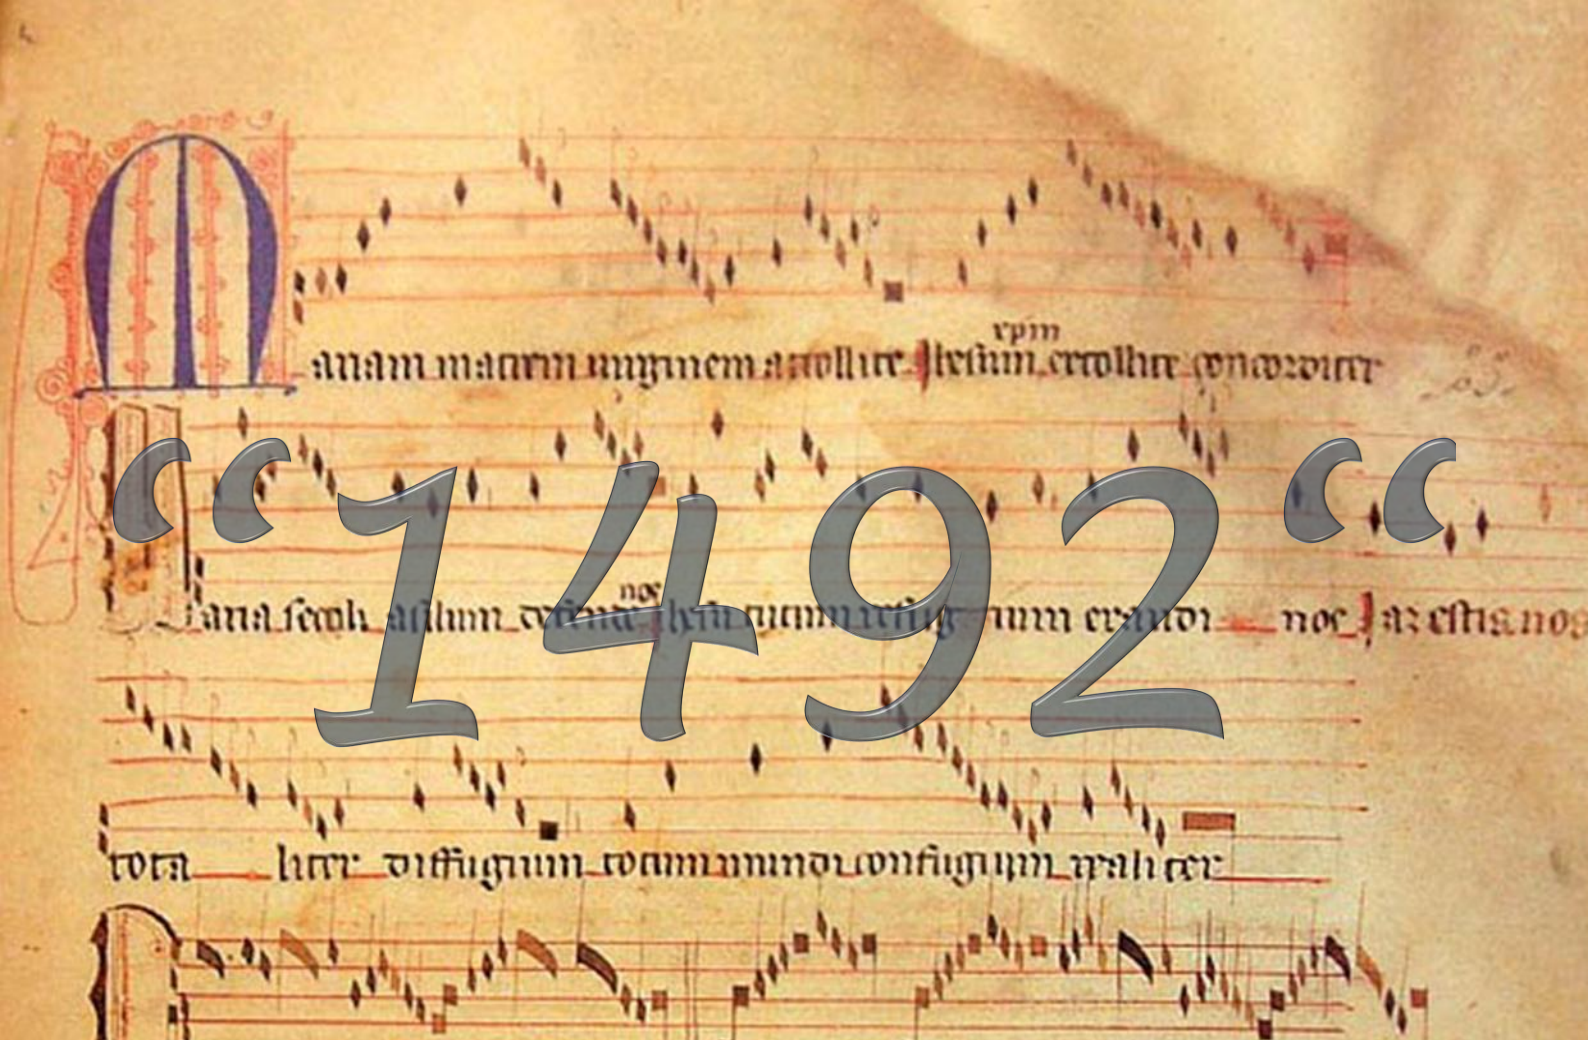 xpm
Mariam matrem uirginem attollite Ihesum extollite concorditer
“1492“
nos
aria seculi asilum defende Ihesu tutum refug ium exaudi nos Jaz estis nos
tota liter diffugium totum mundi confugium realiter